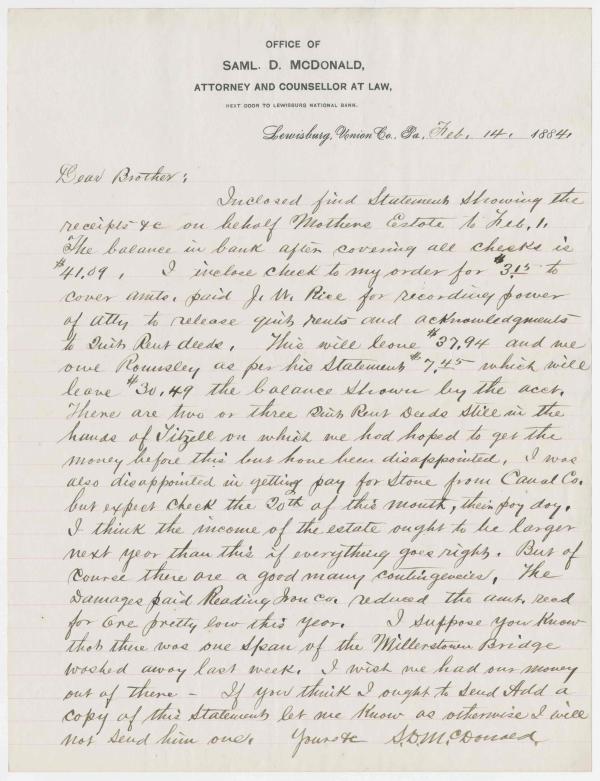 OFFICE OF
SAML. D. MCDONALD,
ATTORNEY AND COUNSELLOR AT LAW,
NEXT DOOR TO LEWISBURG NATIONAL BANK.
Lewisburg, Union Co., Pa. Feb. 14. 1884.
Dear Brother:
Inclosed find Statement showing the
receipts &c on behalf Mothers Estate to Feb. 1.
The balance in bank after covering all checks is
$41.09. I inclose check to my order for $3.15 to
cover amts. paid J. W. Rice for recording power
of atty to release quit rents and acknowledgments
to Quit Rent deeds. This will leave $37.94 and we
owe Romsley as per his Statement $7.45 which will
leave $30.49 the balance shown by the acct.
There are two or three Quit Rent Deeds still in the
hands of Titzell on which we had hoped to get the
money before this but have been disappointed. I was
also disappointed in getting pay for Stone from Canal Co.
but expect check the 20th of this month, their pay day.
I think the income of the estate ought to be larger
next year than this if everything goes right. But of
course there are a good many contingencies. The
Damages paid Reading Iron Co. reduced the amt. recd
for Ore pretty low this year. I suppose you know
that there was one Span of the Millerstown Bridge
washed away last week. I wish we had our money
out of there - If you think I ought to send Add a
copy of this Statement let me know as otherwise I will
not send him one. Yours &c S. D. McDonald.